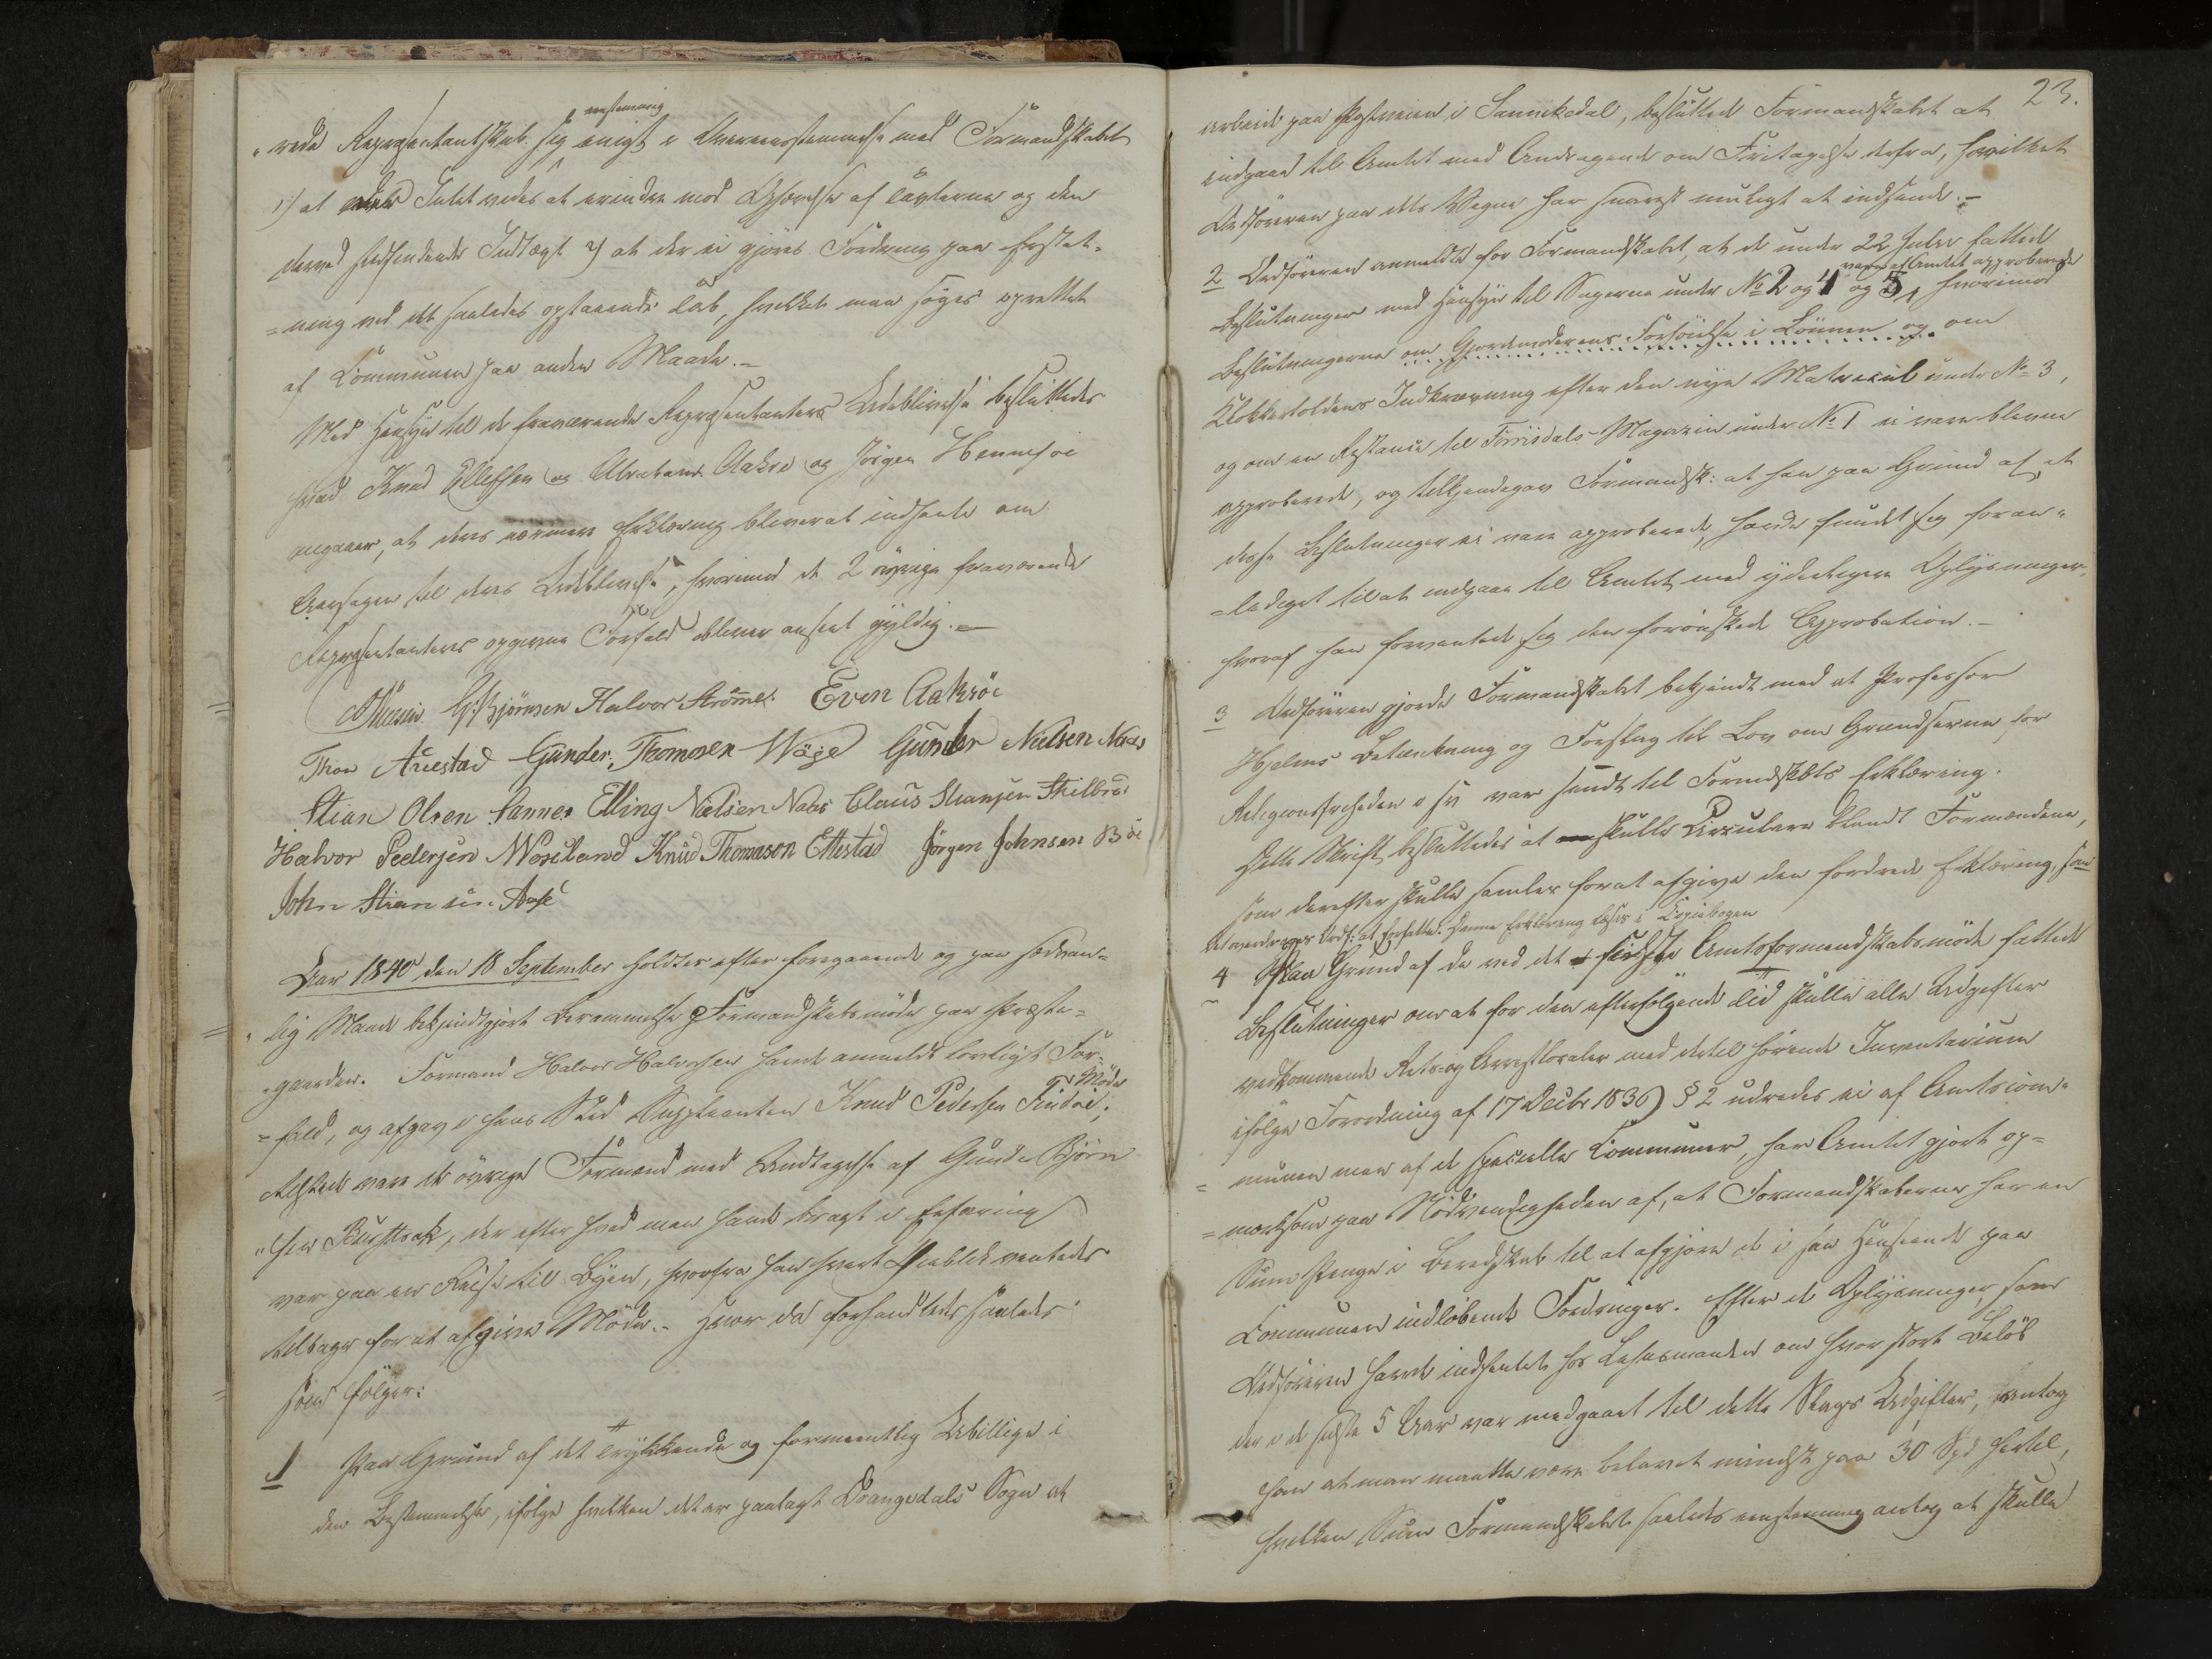 eenstemmig
rede Repræsentantskab. sig enigt i Overeensstemmelse med Formandskabet
1) at Intet vides at erindre mod Ophævelse af Tavlerne og den
derved stedfindende Indtægt 2) at der ei gjøres Fordring paa Erstat=
=ning ved det saaledes opstaaende Tab, hvilket man søger oprettet
af Communen paa anden Maade.–
Med Hensyn til de fraværende Repræsentanters Udeblivelse besluttedes
hvad Knud Ellefsen og Abraham Aakre og Jörgen Henneseie
angaaer, at deres nærmere Erklæring bliver at indhente om
Aarsagen til deres Udeblivelse, hvorimod de 2 øvrige fraværende
Repræsentanters opgivne Forfald bliver anseet gyldig.–
G. Bjørnsen Halvor Strømme Even Aakrøe
Thor Auestad Gunder Thomesen Wåge Gunder Nielsen Næs
Stian Olsen Sannes Elling Nielsen Næs Claus
Halvor Pedersen Knud Thomason Ettestad Jörgen Johnsen Böe
John Stiansen Aase
Aar 1840 den 18 September holdtes efter foregaaende og paa sædvan=
lig Maade bekjendtgjort Berammelse Formandskabsmøde paa Præste=
gaarden. Formand Halvor Halvorsen havde anmeldt lovligt For=
=fald, og afgav i hans Sted Suppleanten Knud Pedersen Findøe Møde
tilstede vare de øvrige Formænd med Undtagelse af Gunder Bjørn=
sen der efter hvad man havde bragt i Erfaring
var paa en Reise til Byen, hvorfra han hvert Øieblik ventedes
tilbage for at afgive Møde.– Hvor da forhandledes saaledes
som følger:
1 Paa Grund af det trykkende og formeentlig Ubillige i
den Bestemmelse, ifølge hvilken det er paalagt Drangedals Sogn at
23.
arbeide paa Postveien i Sannikedal, besluttede Formandskabet at
indgaae til Amtet med Andragende om Fritagelse derfra, hvilket
Ordføreren paa dets Vegne har snarest muligt at indsende.–
2 Ordføreren anmeldte for Formandskabet, at de under 22 Juli fattede
vare af Amtet approberede
Beslutninger med Hensyn til Sagerne under No 2 og 4 og 5, hvorimod
Beslutningerne om Gjordemoderens Forhøielse i Lønnen og om
Klokkertoldens Indkrævning efter den nye Matricul under No 3,
og om en Restance til Tørrisdals-Magazin under No 1 ei vare blevne
approberede, og tilkjendegav Formandsk: at han paa Grund af at
disse Beslutninger ei vare approberede, havde fundet sig foran=
=lediget til at indgaae til Amtet med yderligere Oplysninger,
hvoraf han forventede sig den forønskede Approbation.–
3 Ordføreren gjorde Formandskabet bekjendt med at Professor
Hjelms Betænkning og Forslag til Lov om Grændserne for
Religionsfriheden var sendt til Formdskbts Erklæring.
Dette Skrift besluttedes at skulle Circulere blandt Formændene,
som derefter skulle samles for at afgive den fordrede Erklæring, som
det overdrages Ordf: at forfatte. Denne Erklæring læses i Copiebogen
4 Paa Grund af de ved det sidste Amtsformandskabsmøde fattede
Beslutninger om at for den efterfølgende Tid skulle alle Udgifter
vedkommende Rets- og Arrestlocaler med dertil hørende Inventarium
ifølge Forordning af 17 Decbr 1836) § 2 udredes ei af Amtscom=
=munen men af de specielle Communer, har Amtet gjort op=
=mærksom paa Nødvendigheden af, at Formandskaberne har en
Sum Penge i Beredskab til at afgjøre de i saa Henseende paa
Communen indløbende Fordringer. Efter de Oplysninger som
Ordføreren havde indhentet hos Lehnsmanden om hvor stort Beløb
der i de sidste 5 Aar var medgaaet til dette Slags Udgifter, antog
han at man maatte være belavet mindst paa 30 Spd hertil,
hvilken Sum Formandskabet saaledes eenstemmig antog at skulle